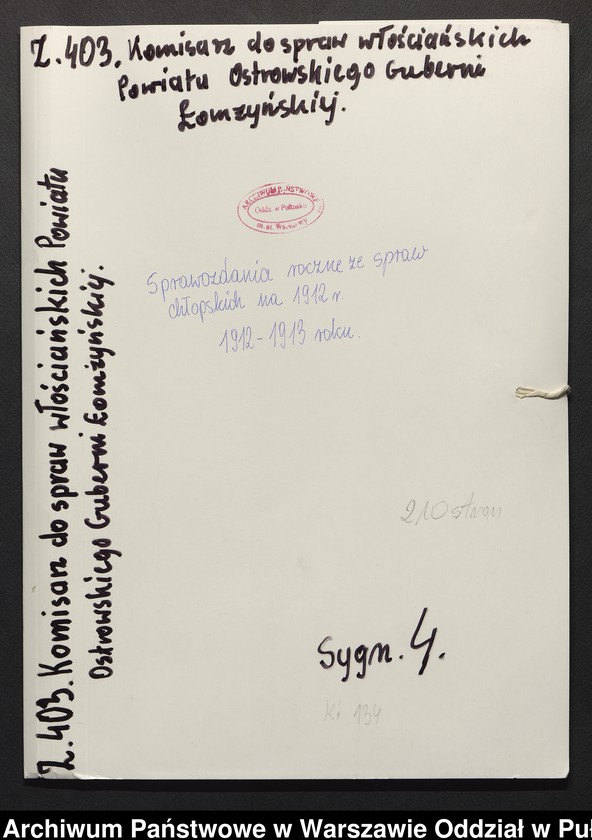 Z. 403. Komisarz do spraw włościańskich
Powiatu Ostrowskiego Guberni
Łomżyńskiej.
ARCHIWUM PAŃSTWOWE
Oddz. w Pułtusku
m. st. Warszawy
Sprawozdania roczne ze spraw
chłopskich na 1912 r.
1912-1913 roku.
210 stron
Sygn. 4.
Ki 134
Z. 403. Komisarz do spraw włościańskich Powiatu
Ostrowskiego Guberni Łomżyńskiej.
Archiwum Państwowe w Warszawie Oddział w Puł